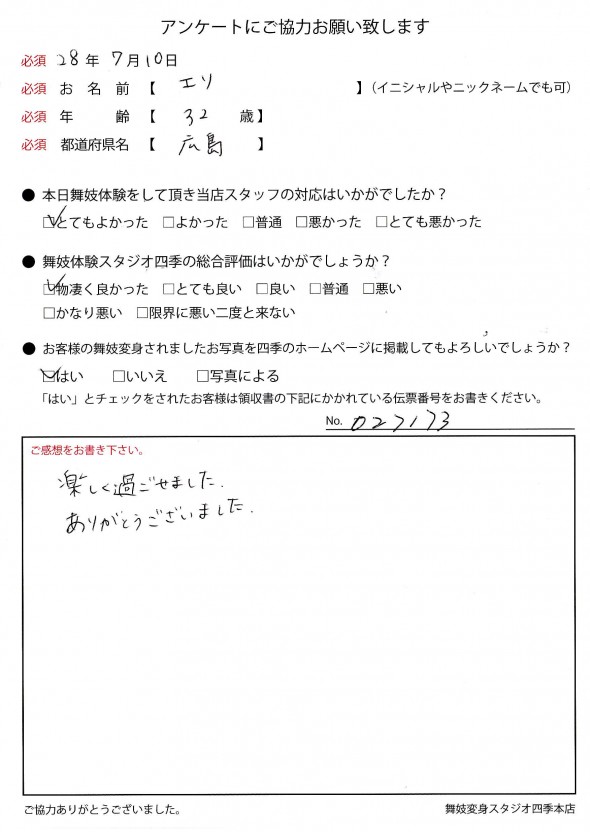 アンケートにご協力お願い致します
必須 28年 7月10日
必須 お名前 【 エリ 】（イニシャルやニックネームでも可）
必須 年齢 【 32 歳】
必須 都道府県名 【 広島 】
● 本日舞妓体験をして頂き当店スタッフの対応はいかがでしたか？
☑とてもよかった □よかった □普通 □悪かった □とても悪かった
● 舞妓体験スタジオ四季の総合評価はいかがでしょうか？
☑物凄く良かった □とても良い □良い □普通 □悪い
□かなり悪い □限界に悪い二度と来ない
● お客様の舞妓変身されましたお写真を四季のホームページに掲載してもよろしいでしょうか？
☑はい □いいえ □写真による
「はい」とチェックをされたお客様は領収書の下記にかかれている伝票番号をお書きください。
No. 027173
ご感想をお書き下さい。
楽しく過ごせました.
ありがとうございました.
ご協力ありがとうございました。 舞妓変身スタジオ四季本店